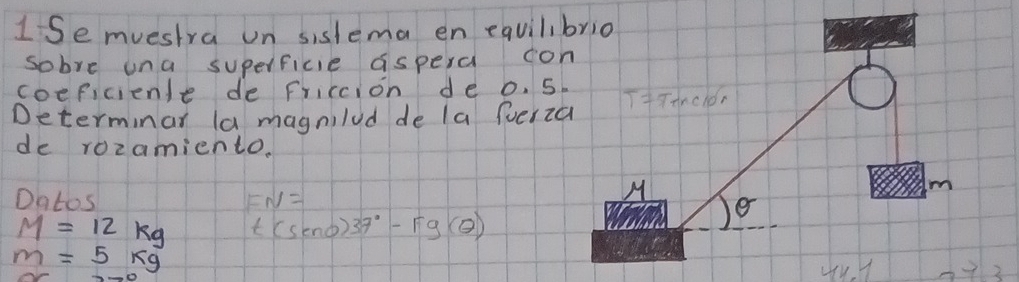 1-Se muestra un sistema en equilibrio
sobre una superficie áspera con
coeficiente de fricción de 0.5.
Determinar la magnitud de la fuerza
de rozamiento.
T=Tención
Datos
M = 12 kg
m = 5 kg
FN=
t(seno)37° - Fg(θ)
M
θ
m